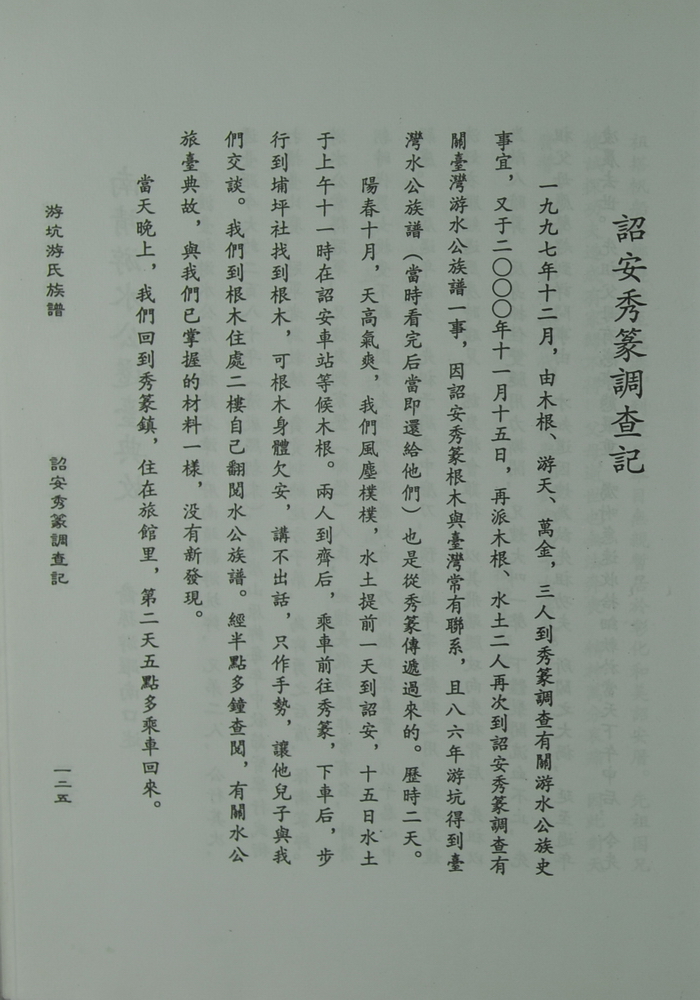 詔安秀篆調查記
一九九七年十二月，由木根、游天、萬金，三人到秀篆調查有關游水公族史
事宜，又于二〇〇〇年十一月十五日，再派木根、水土二人再次到詔安秀篆調查有
關臺灣游水公族譜一事，因詔安秀篆根木與臺灣常有聯系，且八六年游坑得到臺
灣水公族譜（當時看完后當即還給他們）也是從秀篆傳遞過來的。歷時二天。
陽春十月，天高氣爽，我們風塵樸樸，水土提前一天到詔安，十五日水土
于上午十一時在詔安車站等候木根。兩人到齊后，乘車前往秀篆，下車后，步
行到埔坪社找到根木，可根木身體欠安，講不出話，只作手勢，讓他兒子與我
們交談。我們到根木住處二樓自己翻閱水公族譜。經半點多鐘查閱，有關水公
旅臺典故，與我們已掌握的材料一樣，没有新發現。
當天晚上，我們回到秀篆鎮，住在旅館里，第二天五點多乘車回來。
游坑游氏族譜
詔安秀篆調查記
一二五